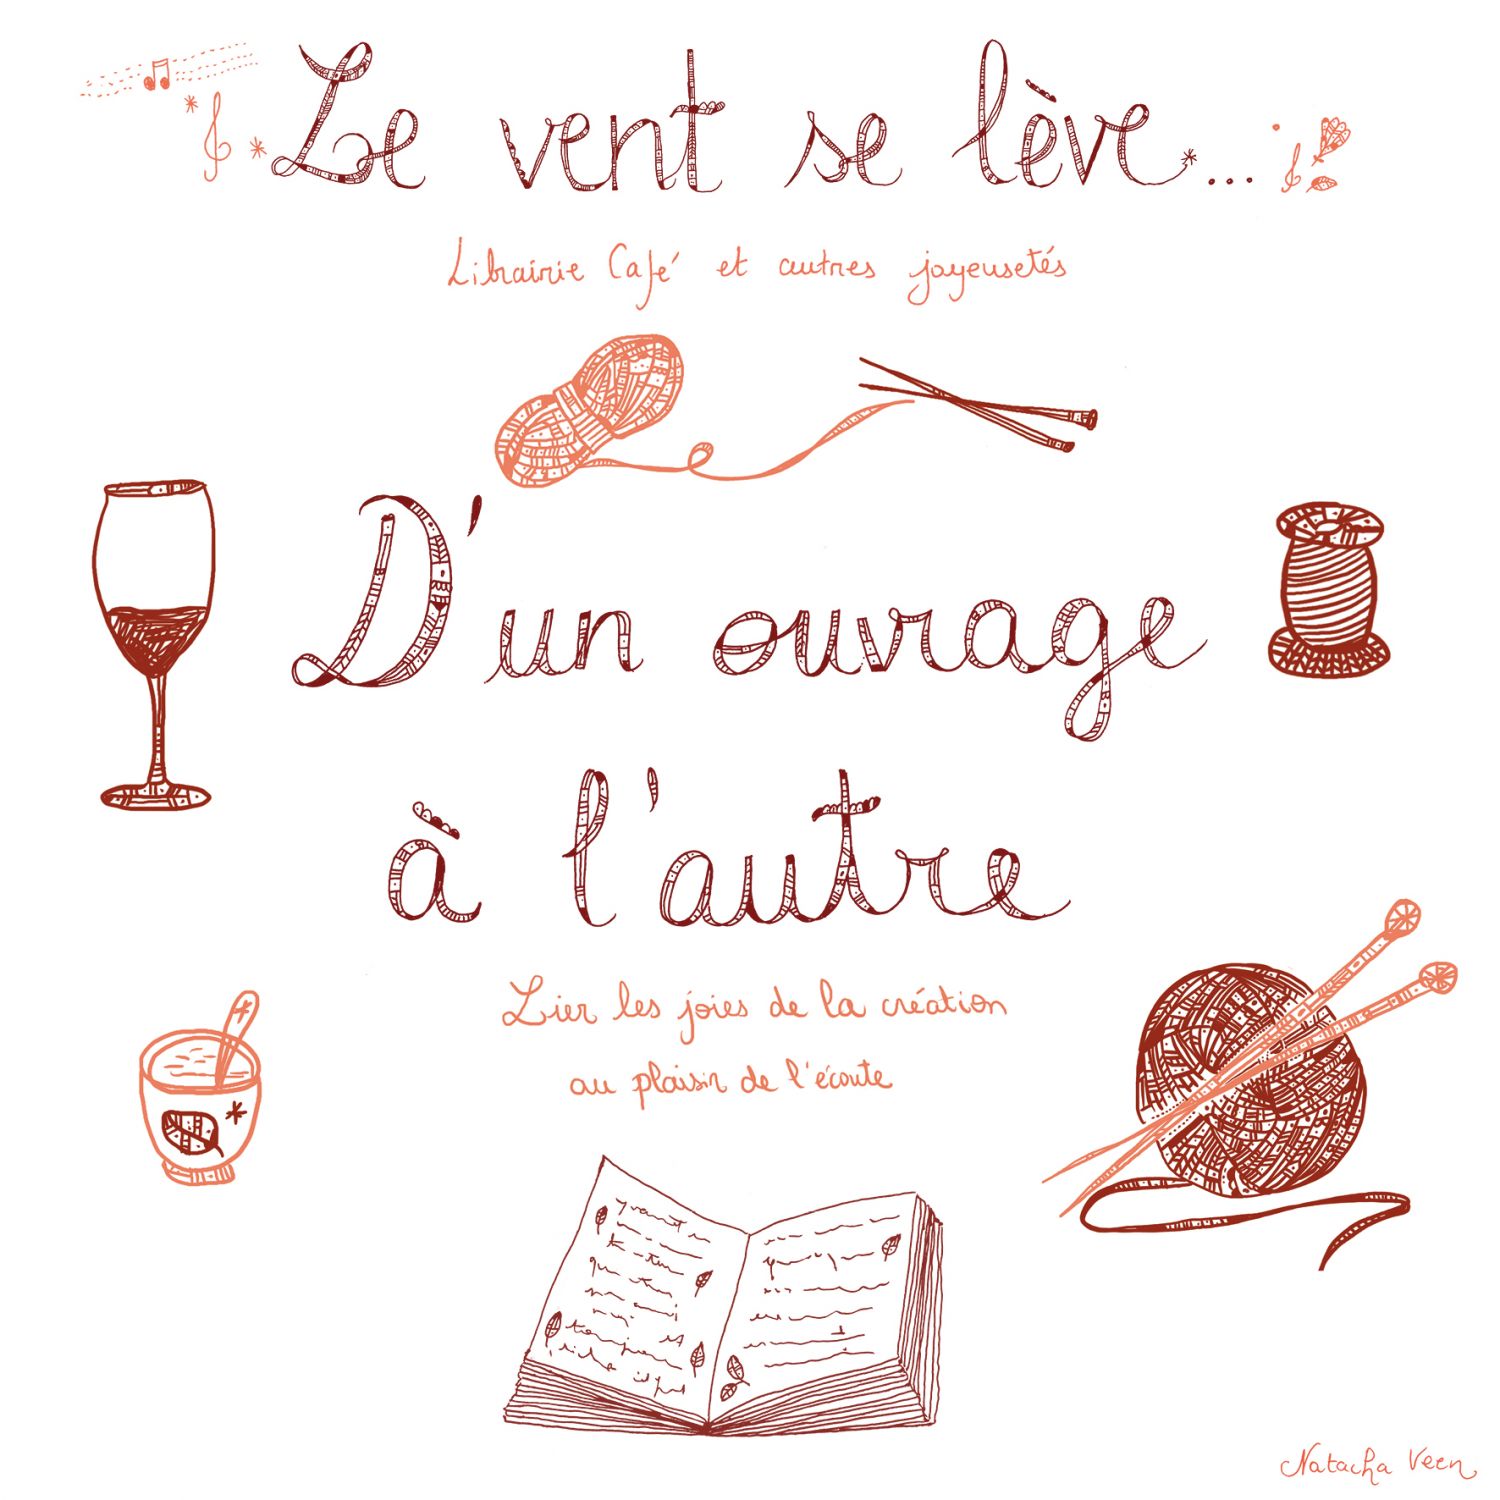 Le vent se lève...
Librairie Café et autres joyeusetés
D'un ouvrage
à l'autre
Lier les joies de la création
au plaisir de l'écoute
Natacha Veen